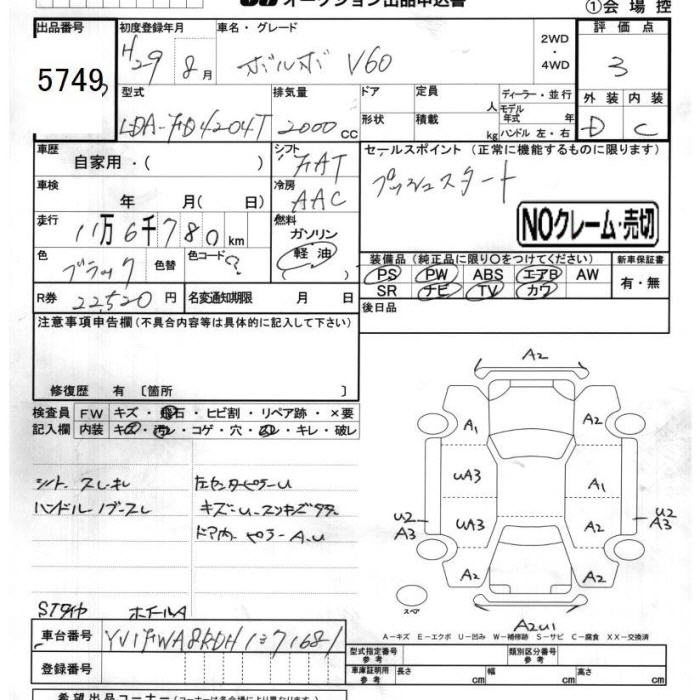 オークション出品申込書
①会場控
出品番号 初度登録年月 車名・グレード 評価点
5749 H29 8月 ボルボ V60 2WD・4WD 3
型式 排気量 ドア 定員 人 ディーラー・並行 外装 内装
モデル年式 年
LDA-FD4204T 2000cc 形状 積載 kg ハンドル 左・右 D C
車歴 自家用・( ) シフト FAT セールスポイント (正常に機能するものに限ります)
プッシュスタート
車検 年 月(日) 冷房 AAC
NOクレーム・売切
走行 11万6千780km 燃料 ガソリン
軽油
( )
色 ブラック 色替 色コード ?
装備品 (純正品に限り○をつけてください) 新車保証書
PS PW ABS エアB AW 有・無
SR ナビ TV カワ
R券 22,520円 名変通知期限 月 日
後日品
注意事項申告欄(不具合内容等は具体的に記入して下さい)
修復歴 有 〔箇所 〕
検査員 FW キズ・飛石・ヒビ割・リペア跡・×要
記入欄 内装 キズ・汚レ・コゲ・穴・・キレ・破レ
シート スレ キレ
ハンドル ノブ スレ
左センターピラーU
キズ・U・スリキズ多々
ドア内 ピラー A.U
STタイヤ ホイールA
A2
A1 A2
UA3 A1
U2 A3 UA3 A2 U2 A3
A2 A2
スペア
A2U1
A－キズ E－エクボ U－凹み W－補修跡 S－サビ C－腐食 XX－交換済
車台番号 YV1FWA8RDH1371681
登録番号
型式指定番号 参考 類別区分番号 参考
車庫証明用 参考 長さ cm 幅 cm 高さ cm
希望出品コーナー(コーナーは各会場により異なります)